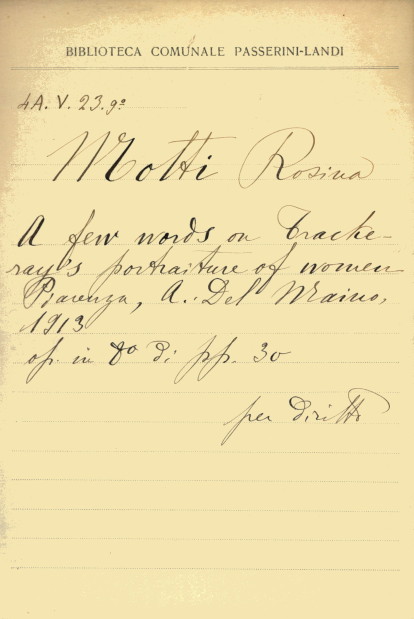 BIBLIOTECA COMUNALE PASSERINI-LANDI
4A. V. 23. 9º
Motti Rosina
A few words on Tracke-
ray's portraiture of women
Piacenza, A. Del Maino,
1913
op. in 8º di pp. 30
per diritto